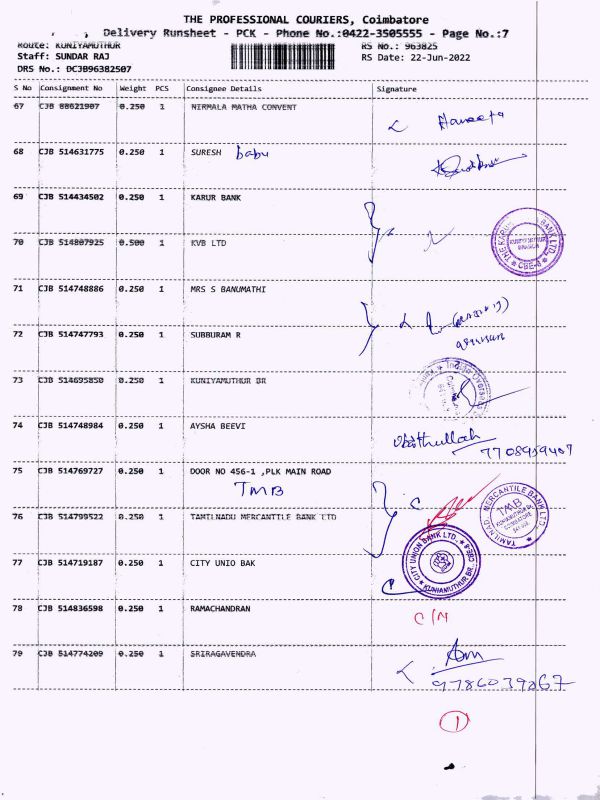 THE PROFESSIONAL COURIERS, Coimbatore
Delivery Runsheet - PCK - Phone No.:0422-3505555 - Page No.:7
Route: KUNIYAMUTHUR RS No.: 963825
Staff: SUNDAR RAJ RS Date: 22-Jun-2022
DRS No.: DCJB96382507
S No Consignment No Weight PCS Consignee Details Signature
67 CJB 88621907 0.250 1 NIRMALA MATHA CONVENT
68 CJB 514631775 0.250 1 SURESH babu
69 CJB 514434502 0.250 1 KARUR BANK
70 CJB 514807925 0.500 1 KVB LTD
71 CJB 514748886 0.250 1 MRS S BANUMATHI
72 CJB 514747793 0.250 1 SUBBURAM R
73 CJB 514695850 0.250 1 KUNIYAMUTHUR BR
74 CJB 514748984 0.250 1 AYSHA BEEVI
75 CJB 514769727 0.250 1 DOOR NO 456-1 ,PLK MAIN ROAD
TMB
TAMILNAD MERCANTILE BANK LTD
TMB
76 CJB 514799522 0.250 1 TAMILNADU MERCANTILE BANK LTD
CITY UNION BANK LTD.,
KUNIAMUTHUR BR.
77 CJB 514719187 0.250 1 CITY UNIO BAK
78 CJB 514836598 0.250 1 RAMACHANDRAN C/N
79 CJB 514774209 0.250 1 SRIRAGAVENDRA
9786039267
1